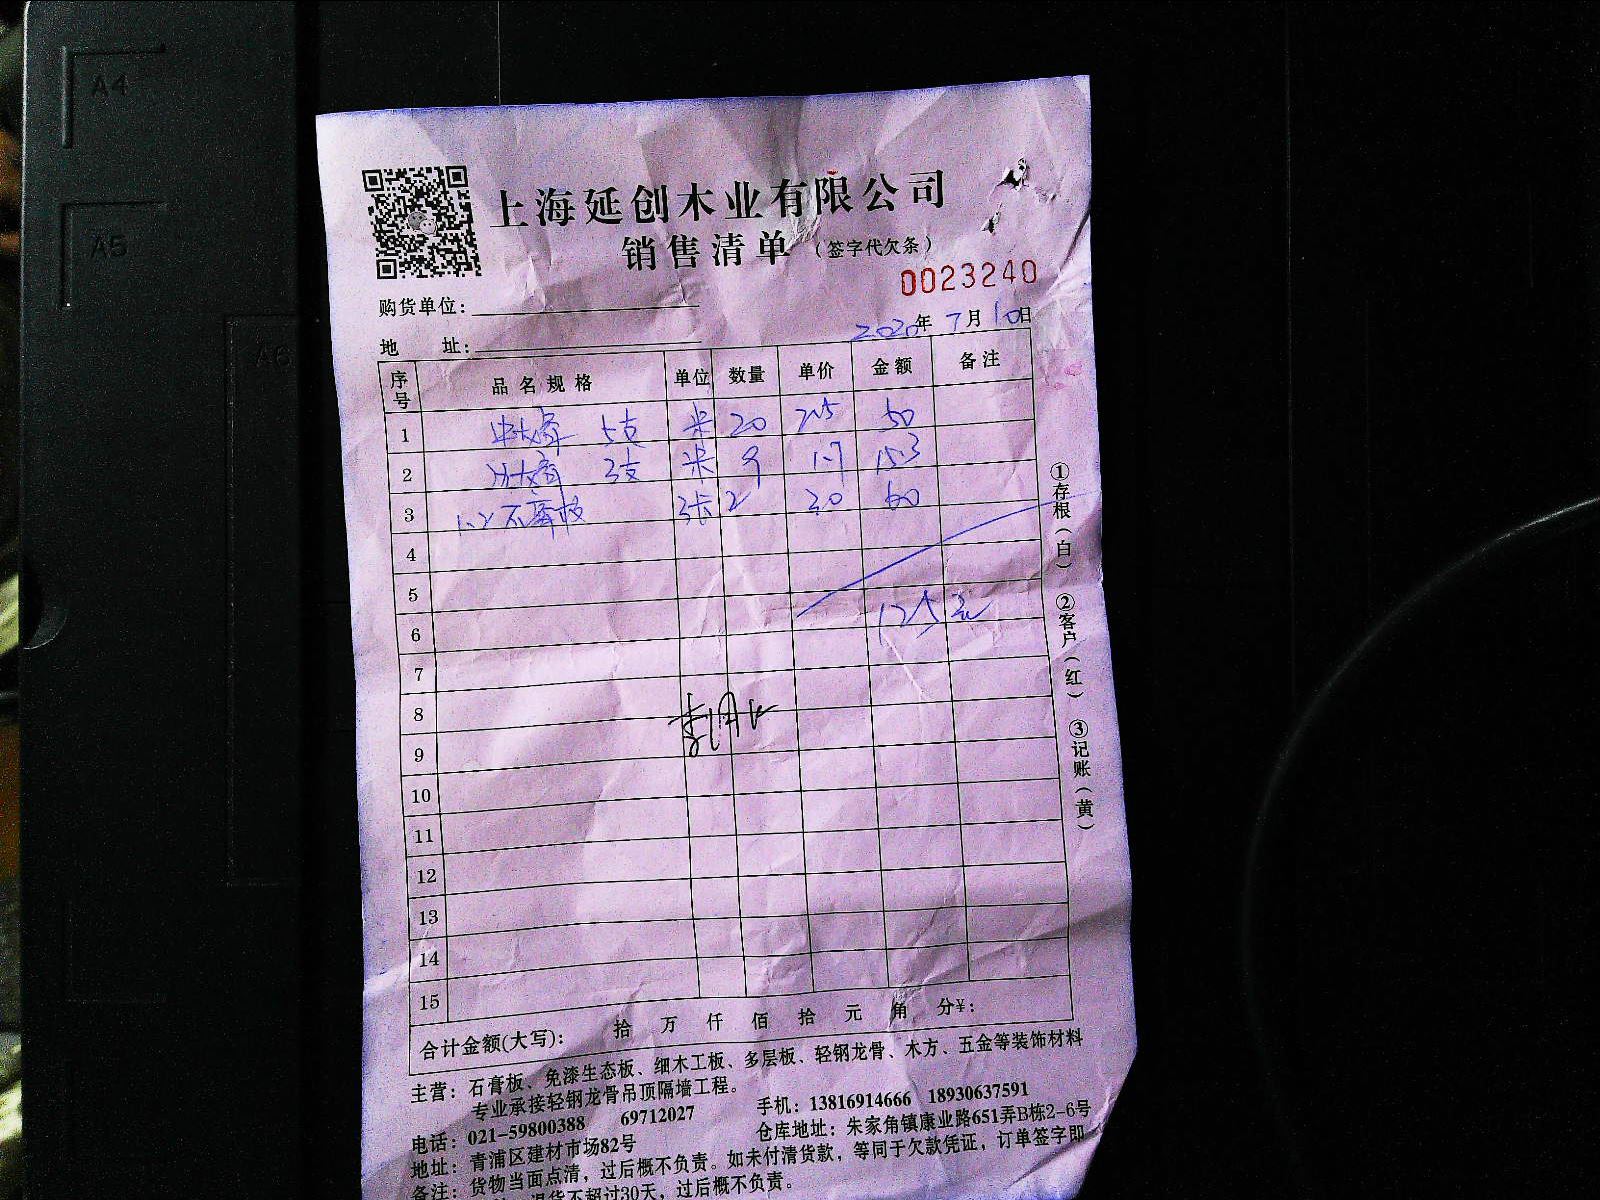 A4
A5
A6
上海延创木业有限公司
销售清单（签字代欠条）
0023240
购货单位：
2020年 7月 10日
地 址：
序号 品名规格 单位 数量 单价 金额 备注
1 5支 米 20 2.5 50
2 3支 米 9 1.7 15.3
3 1.2 石膏板 张 2 30 60
4
5
6 125元
7
8
9
10
11
12
13
14
15
合计金额(大写)： 拾 万 仟 佰 拾 元 角 分¥：
①存根（白） ②客户（红） ③记账（黄）
主营：石膏板、免漆生态板、细木工板、多层板、轻钢龙骨、木方、五金等装饰材料
专业承接轻钢龙骨吊顶隔墙工程。
电话：021-59800388 69712027 手机：13816914666 18930637591
地址：青浦区建材市场82号 仓库地址：朱家角镇康业路651弄B栋2-6号
备注：货物当面点清，过后概不负责。如未付清货款，等同于欠款凭证，订单签字即
退货不超过30天，过后概不负责。